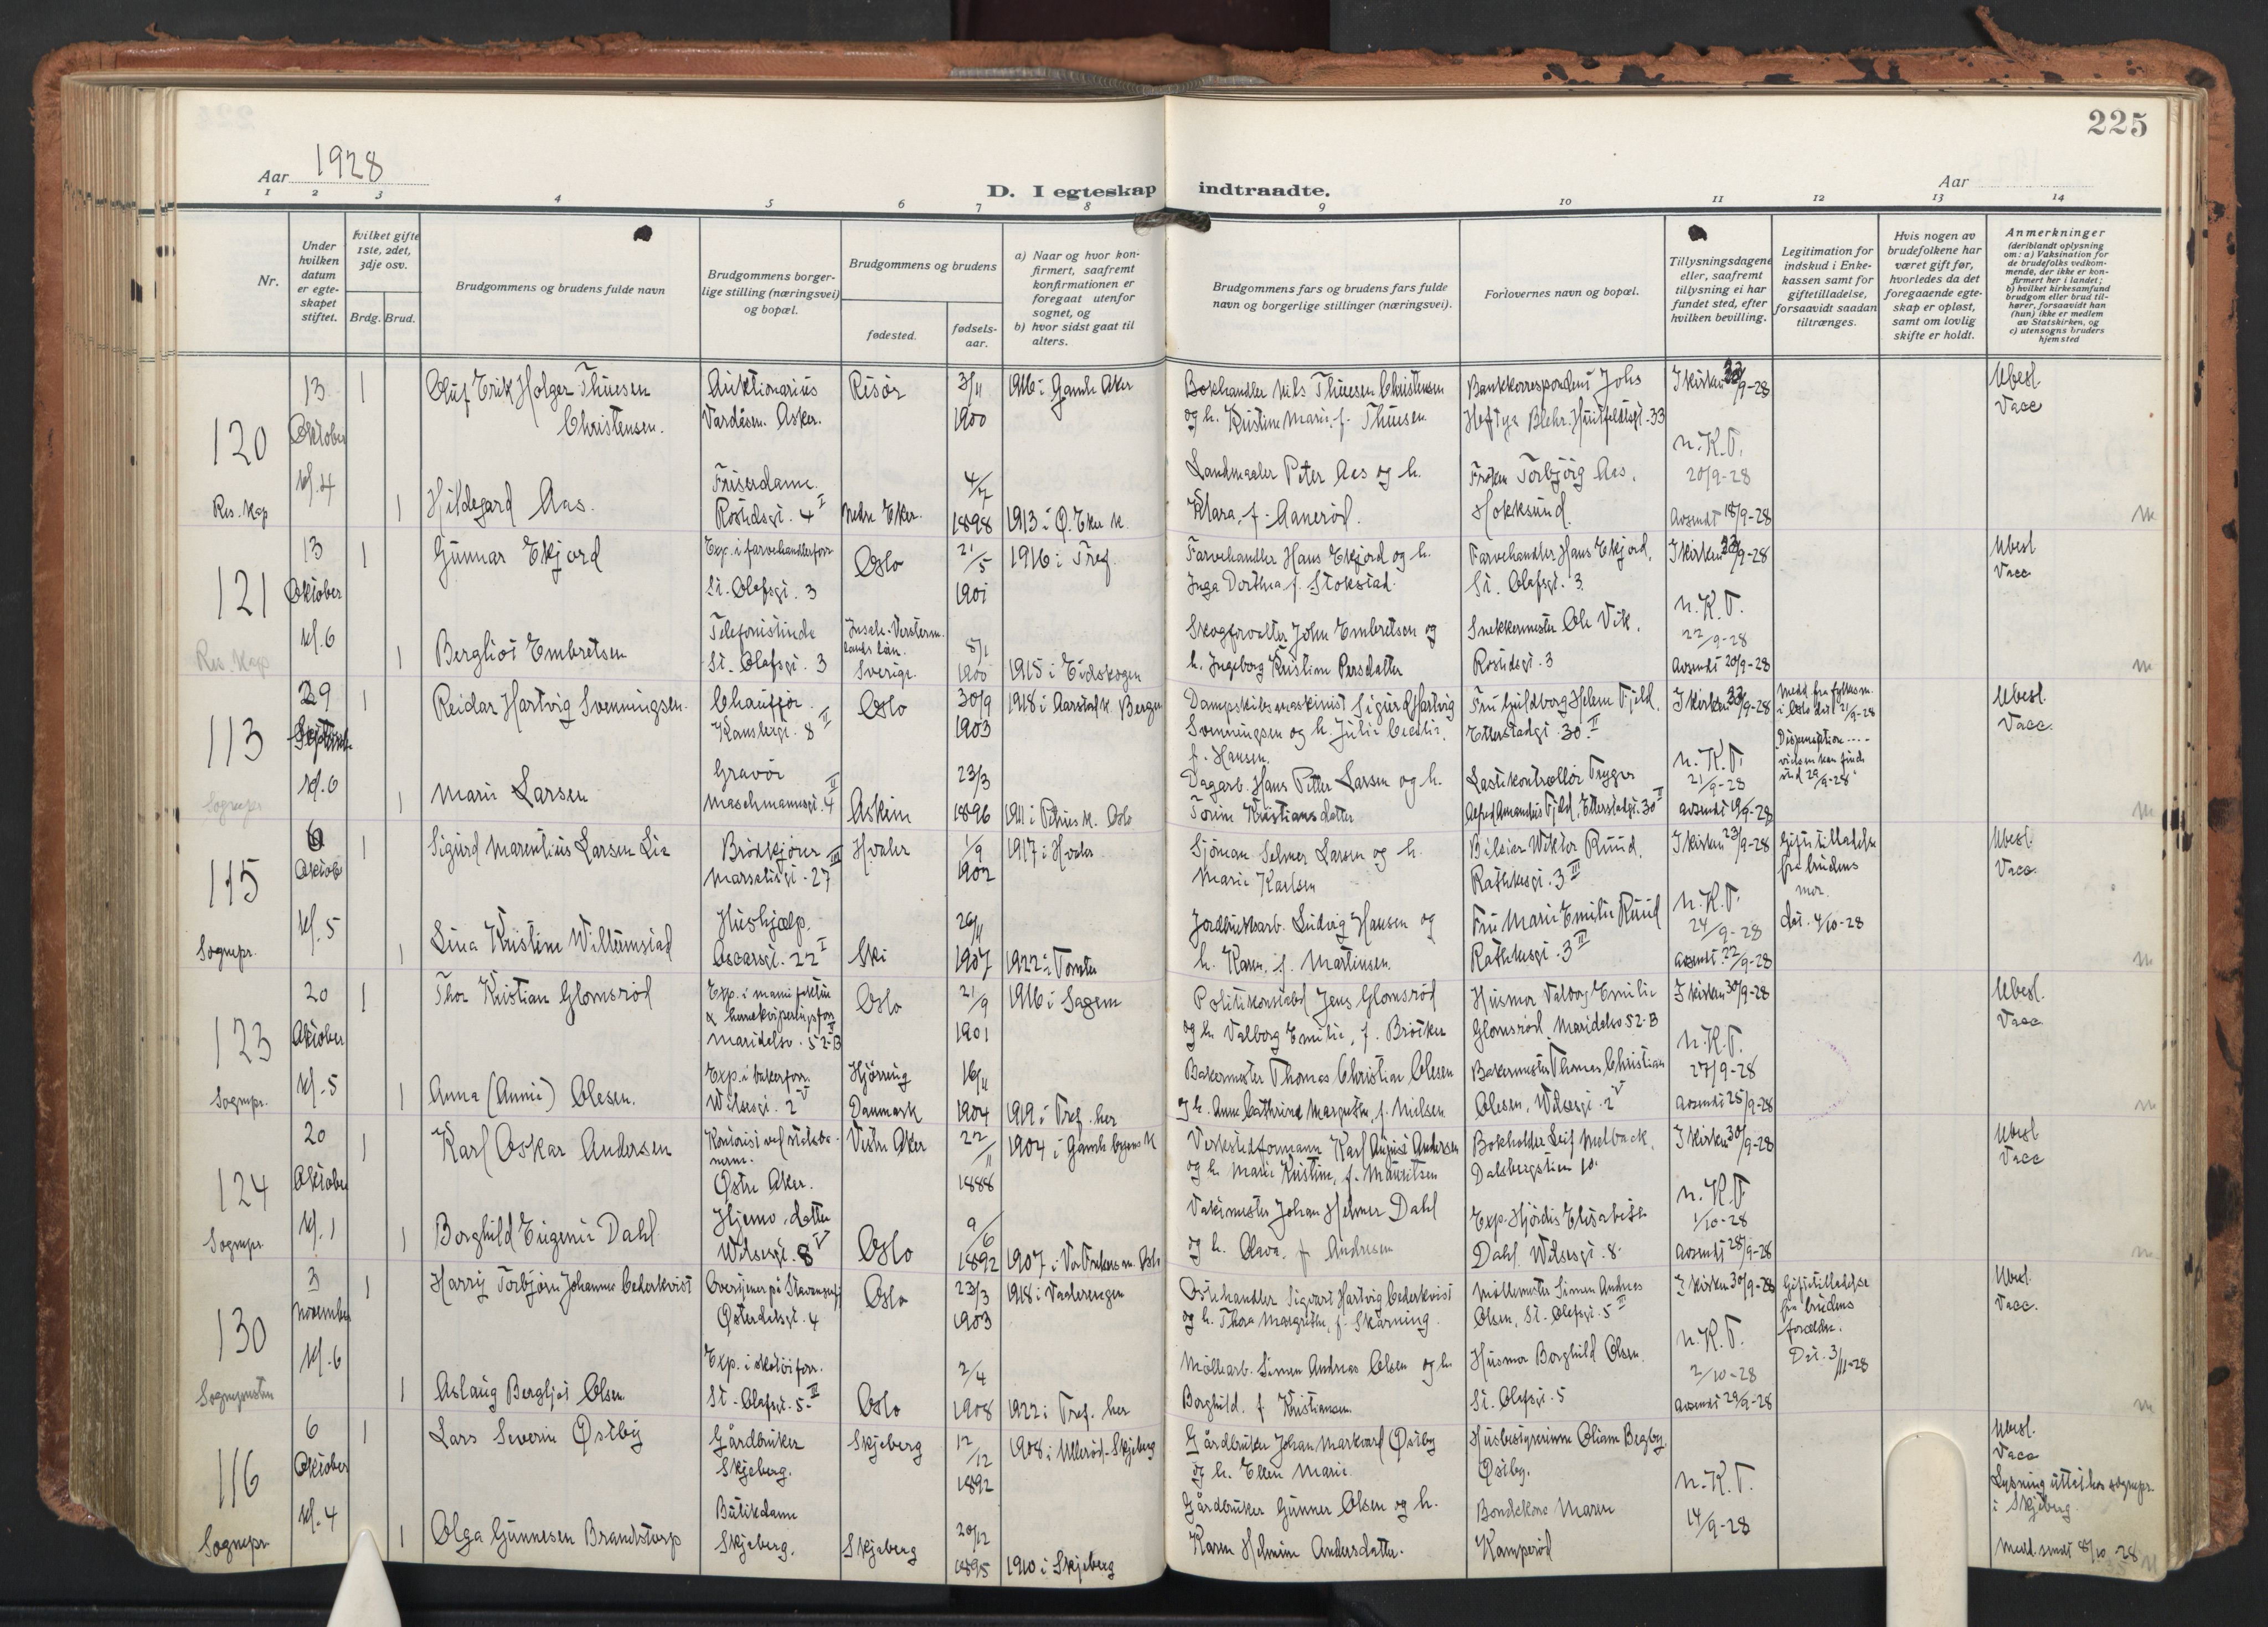 225
Aar 1928
Aar
D. I egteskap indtraadte.
1 2 3 4 5 6 7 8 9 10 11 12 13 14
Nr.
Under hvilken datum er egteskapet stiftet.
hvilket gifte 1ste, 2det, 3dje osv.
Brdg. Brud.
Brudgommens og brudens fulde navn
Brudgommens borgerlige stilling (næringsvei) og bopæl.
Brudgommens og brudens
fødested.
fødselsaar.
a) Naar og hvor konfirmert, saafremt konfirmationen er foregaat utenfor sognet, og
b) hvor sidst gaat til alters.
Brudgommens fars og brudens fars fulde navn og borgerlige stillinger (næringsvei).
Forlovernes navn og bopæl.
Tillysningsdagene eller, saafremt tillysning ei har fundet sted, efter hvilken bevilling.
Legitimation for indskud i Enkekassen samt for giftetilladelse, forsaavidt saadan tiltrænges.
Hvis nogen av brudefolkene har været gift før, hvorledes da det foregaaende egteskap er opløst, samt om lovlig skifte er holdt.
Anmerkninger (deriblandt oplysning om: a) Vaksination for de brudefolks vedkommende, der ikke er konfirmert her i landet; b) hvilket kirkesamfund brudgom eller brud tilhører, forsaavidt han (hun) ikke er medlem av Statskirken, og c) utensogns bruders hjemsted
120 Res. Kap
13 Oktober kl. 4
1 Oluf Erik Holger Thuesen Christensen. Auktionarius Vardåsen. Asker. Risör 3/11 1900 1916 i Gamle Aker
Bokhandler Nils Thuesen Christensen og h. Kristine Marie, f. Thuesen
Bankkorrespondent Johs Heftye Blehr. Huitfeldtsgt. 33
I kirken 23/9-28
n. K. T. 20/9-28
Avsendt 18/9-28
Ubesl. Vacc
1 Hildegard Aas. Friserdame. Rostedsgt. 4 I Nedre Eker. 4/7 1898 1913 i Ö. Eker k.
Landmaaler Peter Aas og h. Klara, f. Aanerød.
Frøken Torbjörg Aas. Hokksund.
121 Res. Kap
13 Oktober kl. 6
1 Gunnar Ekjord Exp. i farvehandlerforr. St. Olafsgt. 3 Oslo 21/5 1901 1916 i Tref.
Farvehandler Hans Ekjord og h. Inga Dorthea f. Stokstad.
Farvehandler Hans Ekjord, St. Olafsgt. 3.
I kirken 23/9-28
n. K. T. 22/9-28
Avsendt 20/9-28
Ubesl Vacc
1 Bergliot Embretsen Telefonistinde St. Olafsgt. 3 Sverige. 8/1 1900 1915 i Eidskogen
Skogforvalter John Embretsen og h. Ingeborg Kristine Persdatter
Snekkermester Ole Vik. Rostedsgt. 3
113 Sognepr.
29 Septemb kl. 6
1 Reidar Hartvig Svenningsen. Chauffør. 8 II Oslo 30/9 1903 1918 i Aarstad k. Bergen
Dampskibsmaskinist Sigurd Hartvig Svenningsen og h. Julie Cecilie, f. Hansen.
Fru Guldborg Helene Fjeld, Etterstadgt. 30 II
I kirken 23/9-28
n. K. T. 21/9-28
avsendt 19/9-28
Medd. fra fylksm. i Oslo dat 21/9-28
Dispensation ---- vielsen kan finde sted 29/9-28.
Ubesl. Vacc.
1 Marie Larsen Gravør Maschmannsgt. 4 II Askim 23/3 1896 1911 i Petrus k. Oslo
Dagarb. Hans Petter Larsen og h. Torine Kristiansdatter
Lastekontrollør Trygve Alfred Amandus Fjeld, Etterstadgt. 30 II
115 Sognepr.
6 Oktob kl. 5
1 Sigurd Marentius Larsen Lie Brödkjører Marselisgt. 27 III Hvaler 1/9 1902 1917 i Hvaler
Sjöman Selmer Larsen og h. Marie Karlsen
Bileier Viktor Ruud. Rathkesgt. 3 III
I kirken 23/9-28
n. K. T. 24/9-28
avsendt 22/9-28
Giftetilladelse fra brudens mor. dat. 4/10-28
Ubesl. Vacc.
1 Lina Kristine Willumstad Hushjælp. Oscarsgt. 22 I Ski 26/11 1907 1922 i Tomter
Jordbruksarb. Ludvig Hansen og h. Karen, f. Martinsen.
Fru Marie Emilie Ruud Rathkesgt. 3 II
123 Sognepr.
20 Oktober kl. 5
1 Thor Kristian Glomsröd Exp. i manufaktur & herrekviperingsforr Maridalsv. 52-B Oslo 21/9 1901 1916 i Sagene
Politikonstabel Jens Glomsröd og h. Valborg Emilie, f. Bröcker
Husmor Valborg Emilie Glomsröd Maridalsv 52-B
I kirken 30/9-28
n. K. T. 27/9-28
Avsendt 25/9-28
Ubesl. Vacc
1 Anna (Annie) Olesen. Exp. i bakerforr. Wilsesgt. 2 V Hjörring Danmark 16/11 1904 1919 i Tref. her
Bakermester Thomas Christian Olesen og h. Anne Cathrine Margrethe, f. Nielsen
Bakermester Thomas Christian Olesen, Wilsesgt. 2 V
124 Sognepr.
20 Oktober kl. 1
1 Karl Oskar Andersen Kontorist ved statsbanerne. Østre Aker. Vestre Aker 22/11 1888 1904 i Gamlebyens k
Verkstedformann Karl August Andersen og h. Marie Kristine, f. Mauritsen
Bokholder Leif Melbark. Dalsbergstien 10.
I kirken 30/9-28
n. K. T 1/10-28
Avsendt 28/9-28
Ubesl Vacc
1 Borghild Eugenie Dahl Hjemv. datter Wilsesgt. 8 V Oslo 9/6 1892 1907 i Vor Frelsers m. Oslo
Vaktmester Johan Helmer Dahl og h. Olava, f. Andresen
Exp. Hjördis Elisabeth Dahl Wilsesgt. 8.
130 Sognepresten
3 November kl. 6
1 Harry Torbjörn Johannes Cederkvist Østerdalsgt. 4 Oslo 23/3 1903 1918 i Vaalerengen
Ostehandler Sigvart Hartvig Cederkvist og h. Thora Margrethe, f. Skarning.
Möllemester Simen Andreas Olsen, St. Olafsgt. 5 III
I kirken 30/9-28
n. K. T. 2/10-28
avsendt 29/9-28
Giftetilladelse fra brudens foreldre. Dat. 3/11-28
Ubesl. Vacc.
1 Aslaug Bergljot Olsen Exp. i skotöiforr. St. Olafsgt. 5 III Oslo 2/4 1908 1922 i Tref. her
Möllearb. Simen Andreas Olsen og h. Borghild, f. Kristiansen
Husmor Borghild Olsen. St. Olafsgt. 5
116 Sognepr
6 Oktober kl. 4
1 Lars Severin Østby Gårdbruker Skjeberg. Skjeberg 12/12 1892 1908 i Ullerød-Skjeberg
Gårdbruker Johan Markvard Østby og h. Ellen Marie.
Husbestyrerinne Oliane Begby, Østby.
n. K. T. 14/9-28
Ubesl. Vacc
Lysning uttatt hos sognepr. i Skjeberg.
Medd. sendt 8/10-28
1 Olga Gunnesen Brandstorp Butikdame Skjeberg. Skjeberg 20/12 1895 1910 i Skjeberg
Gårdbruker Gunner Olsen og h. Karen Helmine Andersdatter.
Bondekone Maren Kamperød